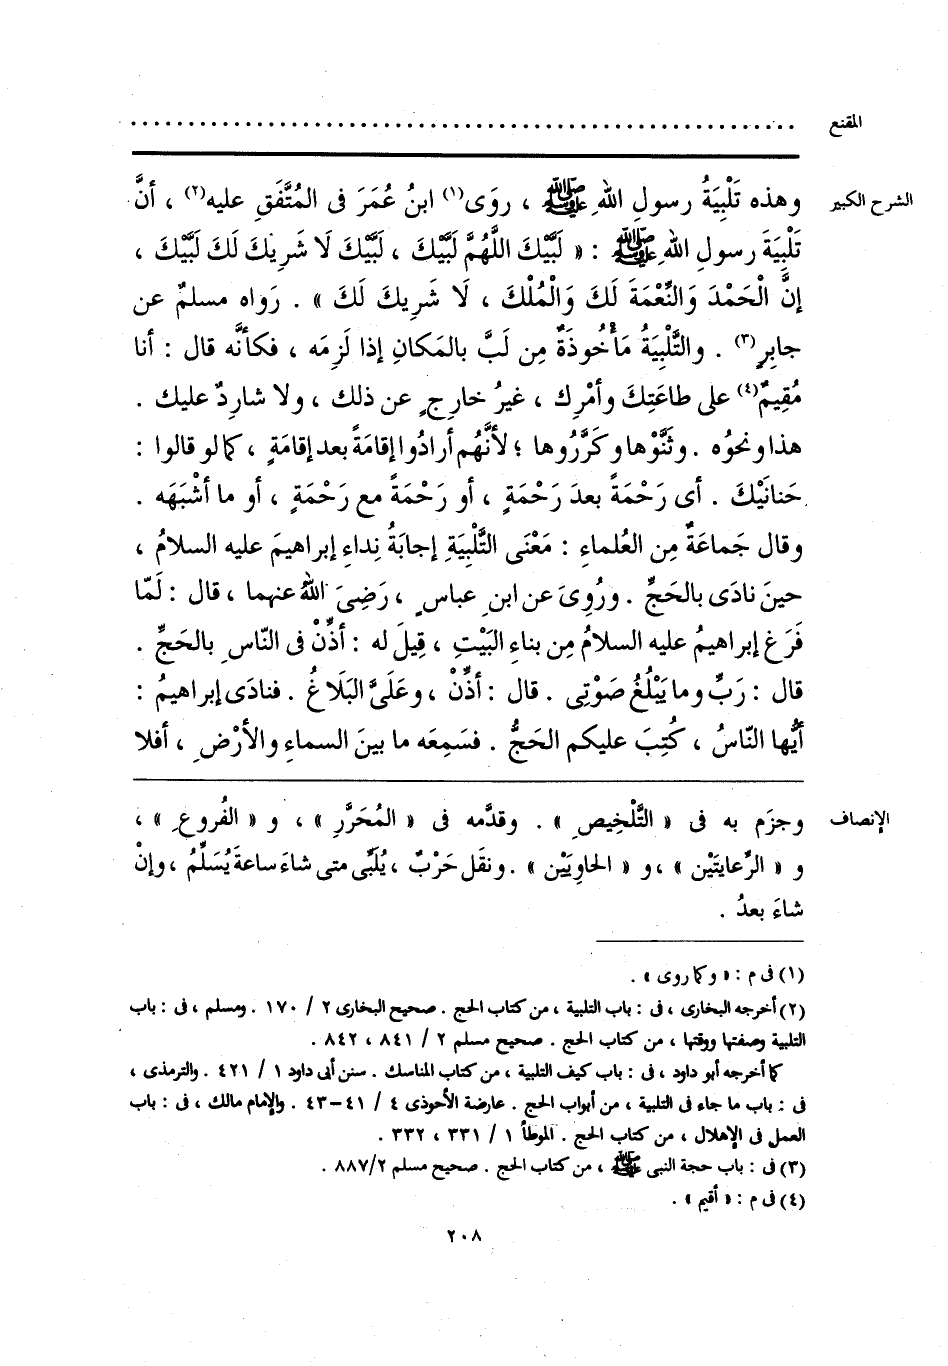 المقنع ............................................................
الشرح الكبير وهذه تَلْبِيَةُ رسولِ اللهِ ﷺ ، روَى(١) ابنُ عُمَرَ فى المُتَّفَقِ عليه(٢) ، أنَّ
تَلْبِيَةَ رسولِ اللهِ ﷺ : « لَبَّيْكَ اللَّهُمَّ لَبَّيْكَ ، لَبَّيْكَ لَا شَرِيكَ لَكَ لَبَّيْكَ ،
إنَّ الْحَمْدَ وَالنِّعْمَةَ لَكَ وَالْمُلْكَ ، لَا شَرِيكَ لَكَ » . رَواه مسلمٌ عن
جابرٍ(٣) . والتَّلْبِيَةُ مَأْخُوذَةٌ مِن لَبَّ بالمَكانِ إذا لَزِمَه ، فكأنَّه قال : أنا
مُقِيمٌ(٤) على طاعَتِكَ وأمْرِك ، غيرُ خارِجٍ عن ذلك ، ولا شارِدٌ عليك .
هذا ونحوُه . وثَنَّوْها وكَرَّرُوها ؛ لأنَّهُم أرادُوا إقامَةً بعد إقامَةٍ ، كما لو قالوا :
حَنانَيْكَ . أى رَحْمَةً بعدَ رَحْمَةٍ ، أو رَحْمَةً مع رَحْمَةٍ ، أو ما أشْبَهَه .
وقال جَماعَةٌ مِن العُلماءِ : مَعْنَى التَّلْبِيَةِ إجابَةُ نِداءِ إبراهيمَ عليه السلامُ ،
حينَ نادَى بالحَجِّ . ورُوِىَ عن ابنِ عباسٍ ، رَضِىَ اللهُ عنهما ، قال : لَمّا
فَرَغ إبراهيمُ عليه السلامُ مِن بناءِ البَيْتِ ، قِيلَ له : أذِّنْ فى النّاسِ بالحَجِّ .
قال : رَبِّ وما يَبْلُغُ صَوْتِى . قال : أذِّنْ ، وعَلَىَّ البَلَاغُ . فنادَى إبراهيمُ :
أيُّها النّاسُ ، كُتِبَ عليكم الحَجُّ . فسَمِعَه ما بينَ السماءِ والأرْضِ ، أفلا
الإنصاف وجزَم به فى « التَّلْخِيصِ » . وقدَّمه فى « المُحَرَّرِ » ، و « الفُروعِ » ،
و « الرِّعايتَيْن » ، و « الحاوِيَيْن » . ونقَل حَرْبٌ ، يُلَبِّى متى شاءَ ساعةَ يُسَلِّمُ ، وإنْ
شاءَ بعدُ .
(١) فى م : « وكما روى » .
(٢) أخرجه البخارى ، فى : باب التلبية ، من كتاب الحج . صحيح البخارى ٢ / ١٧٠ . ومسلم ، فى : باب
التلبية وصفتها ووقتها ، من كتاب الحج . صحيح مسلم ٢ / ٨٤١ ، ٨٤٢ .
كما أخرجه أبو داود ، فى : باب كيف التلبية ، من كتاب المناسك . سنن أبى داود ١ / ٤٢١ . والترمذى ،
فى : باب ما جاء فى التلبية ، من أبواب الحج . عارضة الأحوذى ٤ / ٤١-٤٣ . والإمام مالك ، فى : باب
العمل فى الإهلال ، من كتاب الحج . الموطأ ١ / ٣٣١ ، ٣٣٢ .
(٣) فى : باب حجة النبى ﷺ ، من كتاب الحج . صحيح مسلم ٨٨٧/٢ .
(٤) فى م : « أقيم » .
٢٠٨